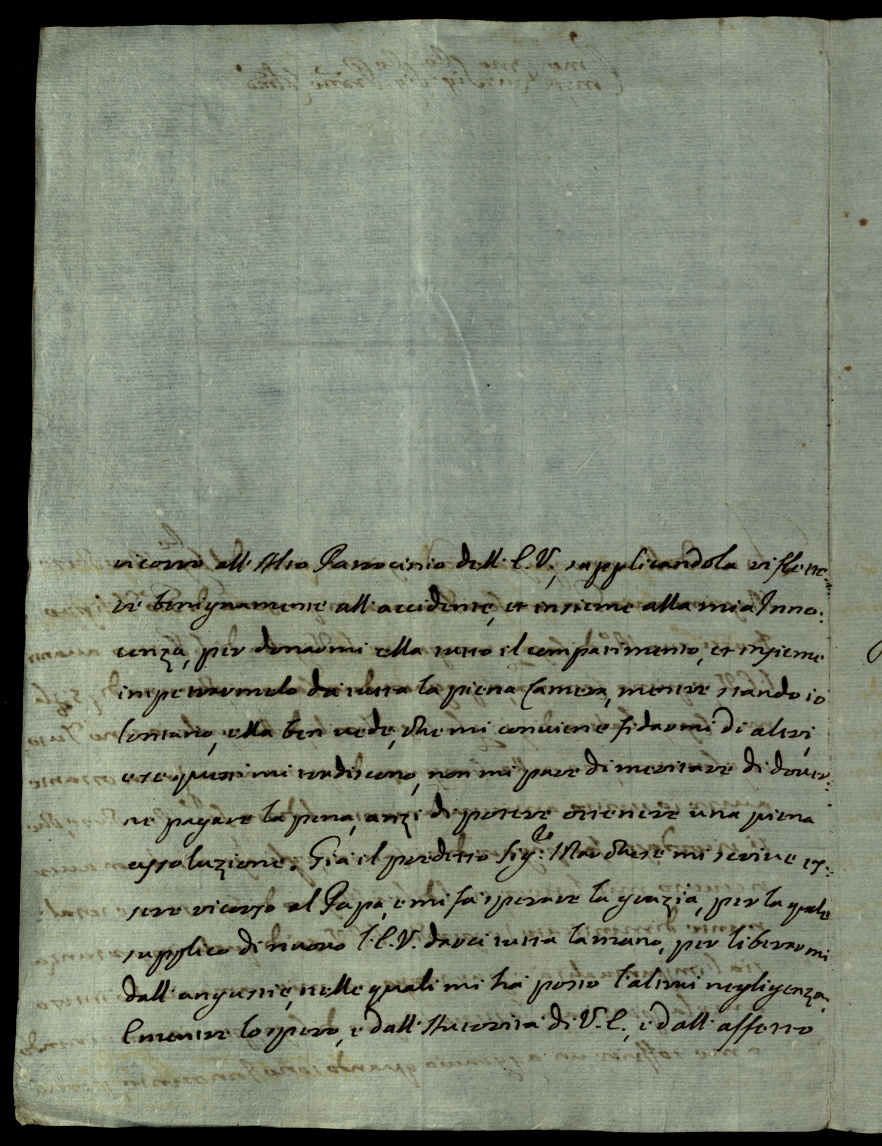 ricorro all'Alto Patrocinio dell'E.V., supplicandola riflette=
re benignamente all'accidente, et insieme alla mia Inno=
cenza, per donarmi ella tutto il compatimento, et insieme
impetrarmelo da tutta la piena Camera, mentre stando io
lontano, ella ben vede, che mi conviene fidarmi di altri,
e se questi mi tradiscono, non mi pare di meritare di dover=
ne pagare la pena, anzi di potere ottenere una piena
assoluzione. Già il predetto Sig.re Marchese mi scrive es=
sere ricorso al Papa, e mi fa sperare la grazia, per la quale
supplico di nuovo l'E.V. darci tutta la mano, per liberarmi
dall'angustie, nelle quali mi ha posto l'altrui negligenza,
E mentre lo spero, e dall'Autorità di V.E., e dall'affetto